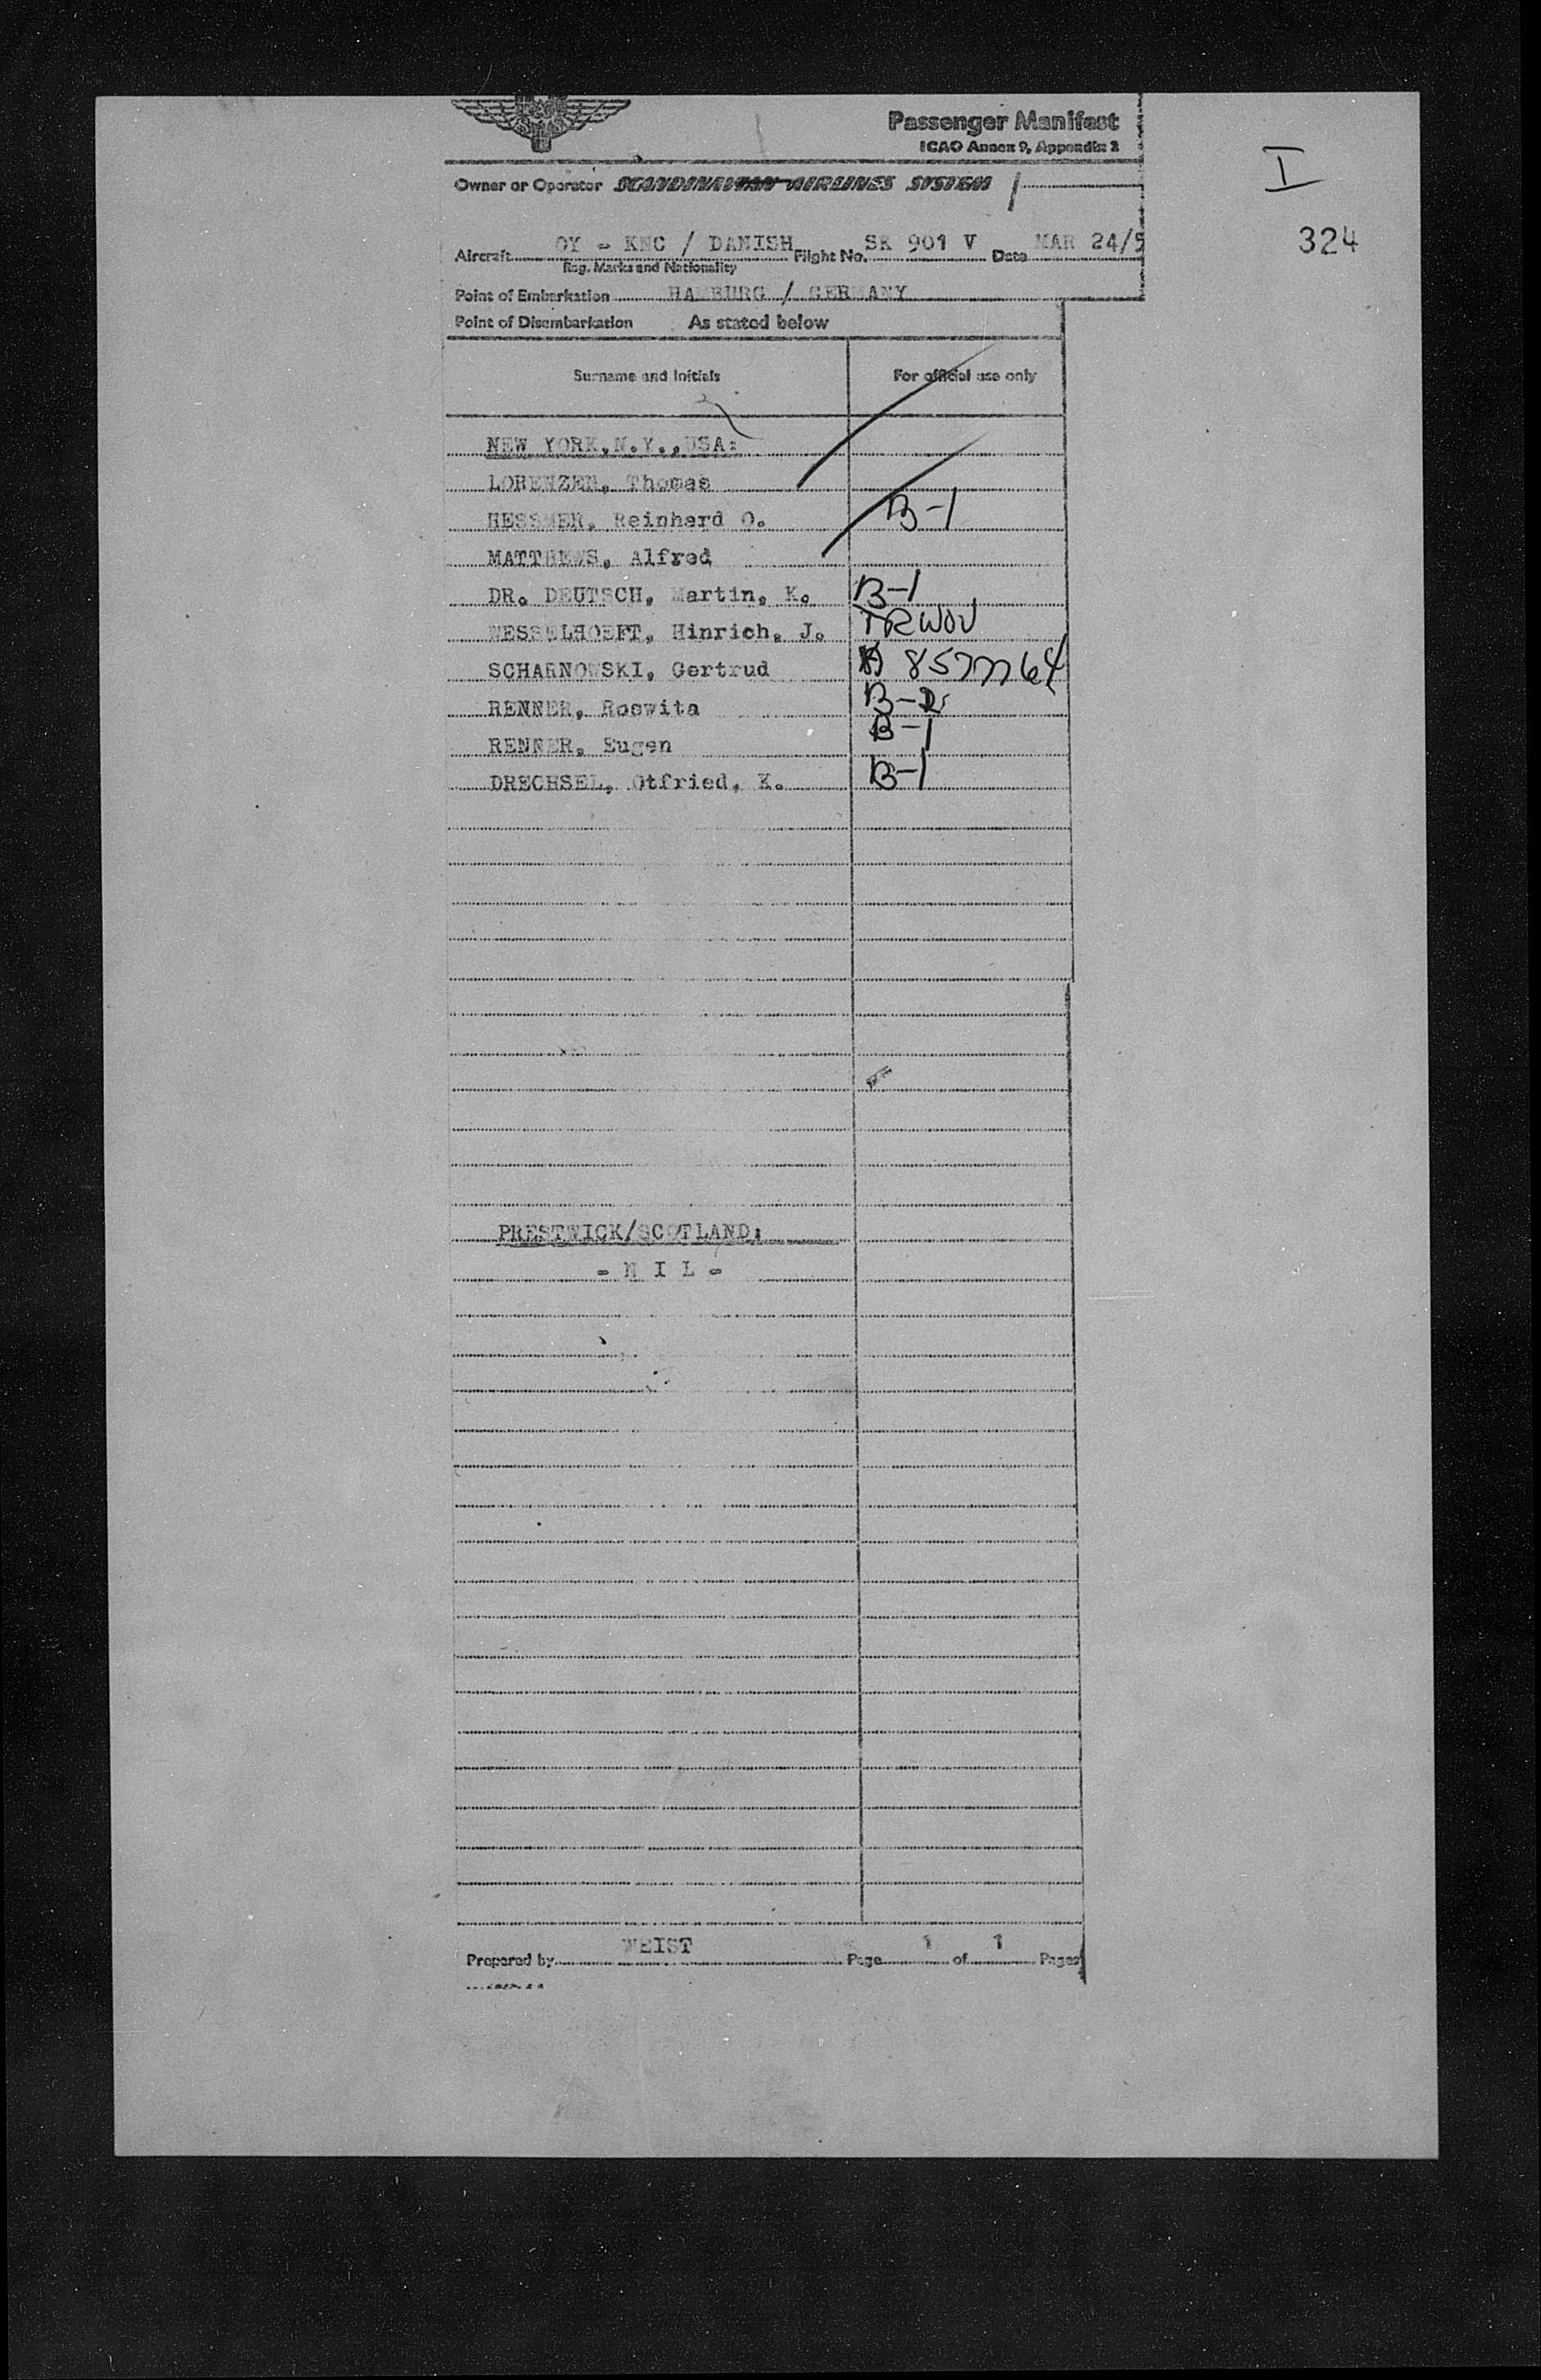 SAS
Passenger Manifest
ICAO Annex 9, Appendix 2
I
Owner or Operator SCANDINAVIAN AIRLINES SYSTEM
324
Aircraft OY - KNC / DANISH Flight No. SK 901 V Date MAR 24/5
Reg. Marks and Nationality
Point of Embarkation HAMBURG / GERMANY
Point of Disembarkation As stated below
Surname and Initials For official use only
NEW YORK,N.Y.,USA:
LORENZEN, Thomas
HESSMER, Reinhard O. B-1
MATTHEWS, Alfred
DR. DEUTSCH, Martin, K. B-1
WESSELHOEFT, Hinrich, J. TRWOV
SCHARNOWSKI, Gertrud A 8577764
RENNER, Roswita B-2
RENNER, Eugen B-1
DRECHSEL, Otfried, K. B-1
PRESTWICK/SCOTLAND:
- N I L -
Prepared by WEIST Page 1 of 1 Pages